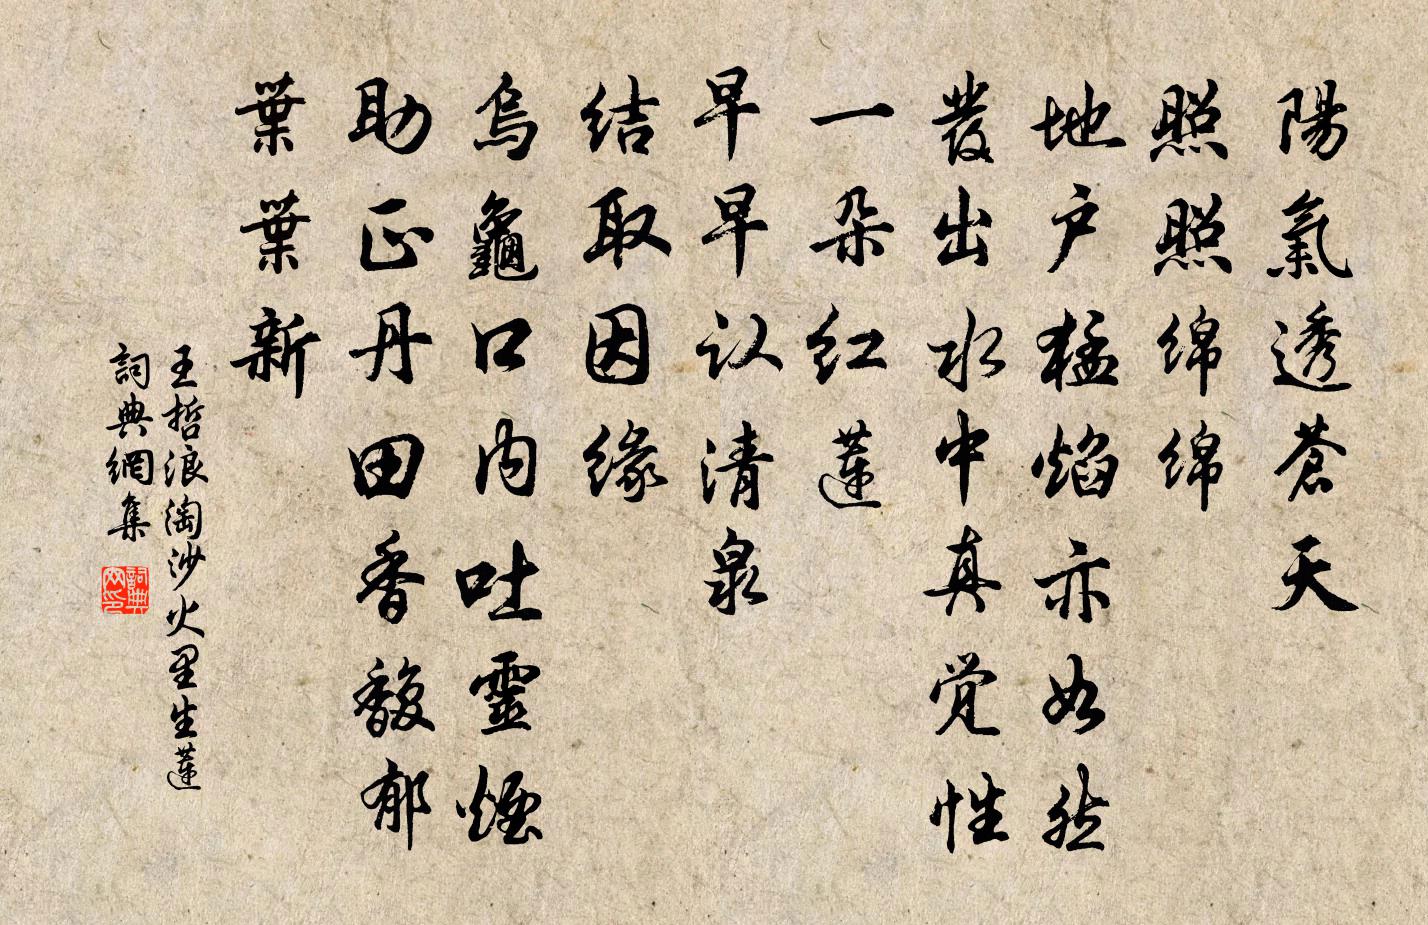 陽氣透蒼天
照照绵绵
地户猛焰亦如然
發出水中真觉性
一朵红蓮
早早认清泉
结取因缘
烏龜口内吐靈煙
助正丹田香馥郁
葉葉新
王哲浪淘沙火里生蓮
詞典網集
詞典
网印